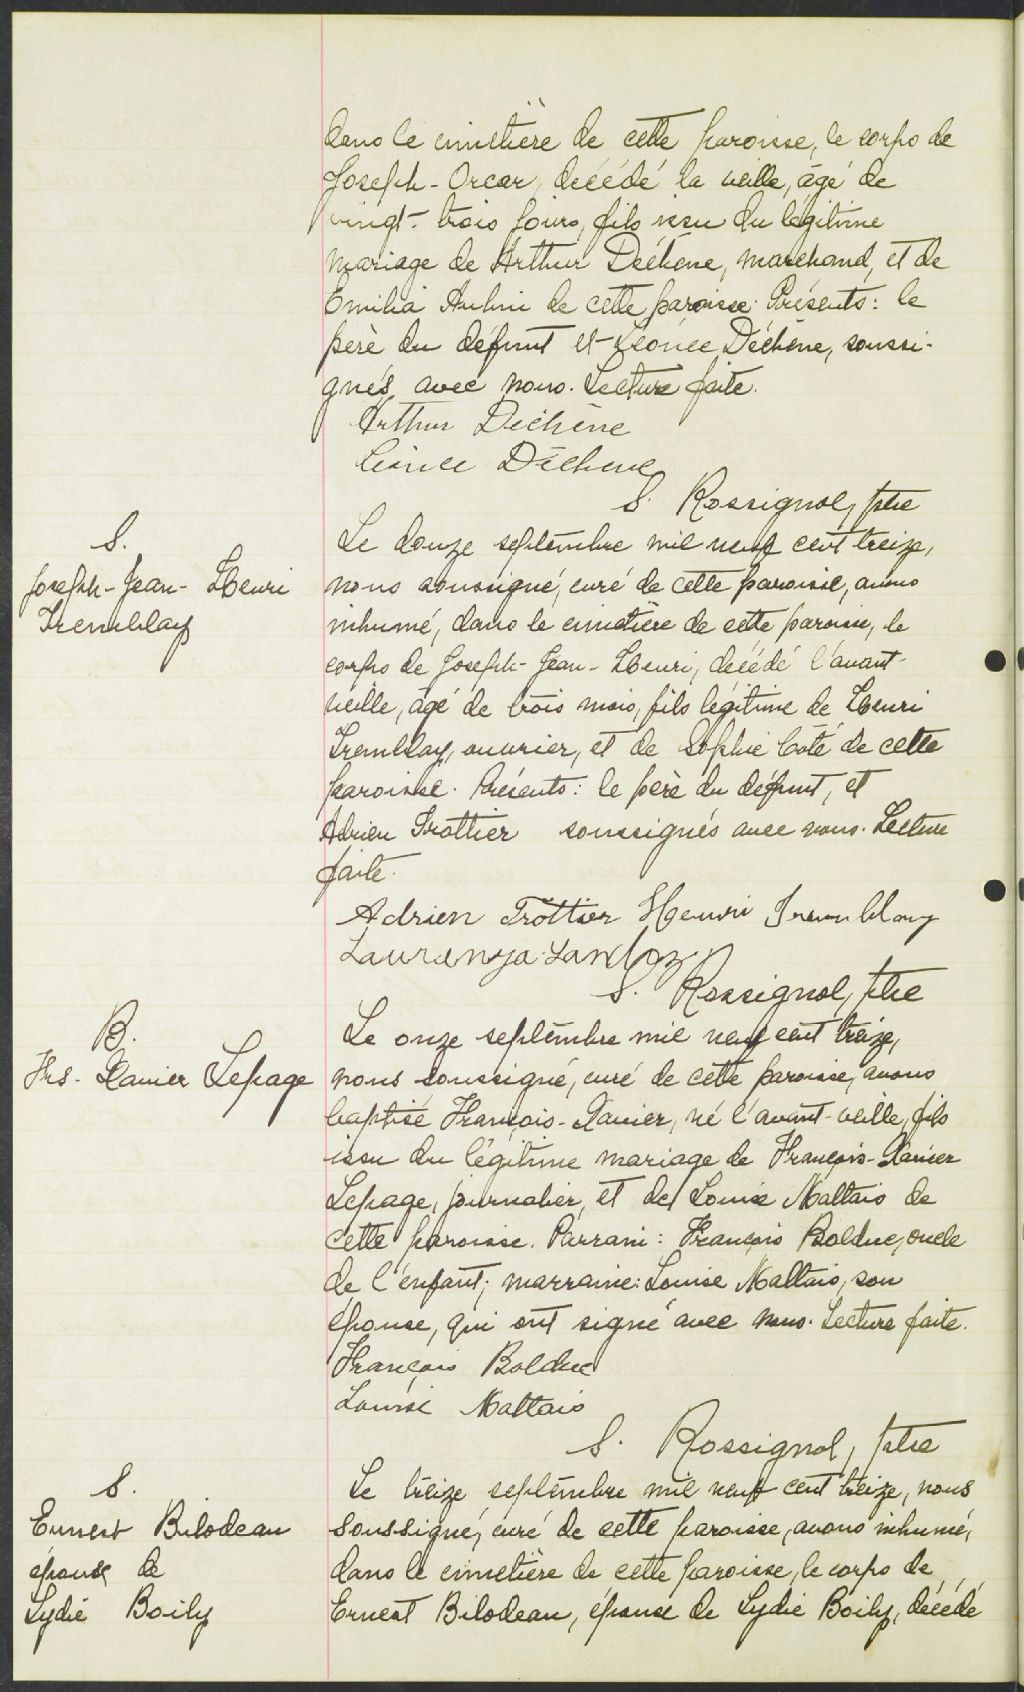 dans le cimetière de cette paroisse, le corps de
Joseph-Oscar, décédé la veille, âgé de
vingt-trois jours, fils issu du légitime
mariage de Arthur Dechêne, marchand, et de
Emilia Aubin de cette paroisse. Présents: le
père du défunt et Léonce Déchêne, soussi-
gnés avec nous. Lecture faite.
Arthur Dechêne
Léonce Dechêne
S. Rossignol, ptre
S.
Joseph-Jean-Henri
Tremblay
Le douze septembre mil neuf cent treize,
nous soussigné, curé de cette paroisse, avons
inhumé, dans le cimetière de cette paroisse, le
corps de Joseph-Jean-Henri, décédé l'avant-
veille, âgé de trois mois, fils légitime de Henri
Tremblay, ouvrier, et de Sophie Coté de cette
paroisse. Présents: le père du défunt, et
Adrien Trottier soussignés avec nous. Lecture
faite.
Adrien Trottier Henri Tremblay
S. Rossignol, ptre
B.
Frs-Xavier Lepage
Le onze septembre mil neuf cent treize,
nous soussigné, curé de cette paroisse, avons
baptisé François-Xavier, né l'avant-veille, fils
issu du légitime mariage de François-Xavier
Lepage, journalier, et de Louise Maltais de
cette paroisse. Parrain: François Bolduc, oncle
de l'enfant; marraine: Louise Maltais, son
épouse, qui ont signé avec nous. Lecture faite.
François Bolduc
Louise Maltais
S. Rossignol, ptre
S.
Ernest Bilodeau
épouse de
Lydie Boily
Le treize septembre mil neuf cent treize, nous
soussigné, curé de cette paroisse, avons inhumé,
dans le cimetière de cette paroisse, le corps de
Ernest Bilodeau, épouse de Lydie Boily, décédé